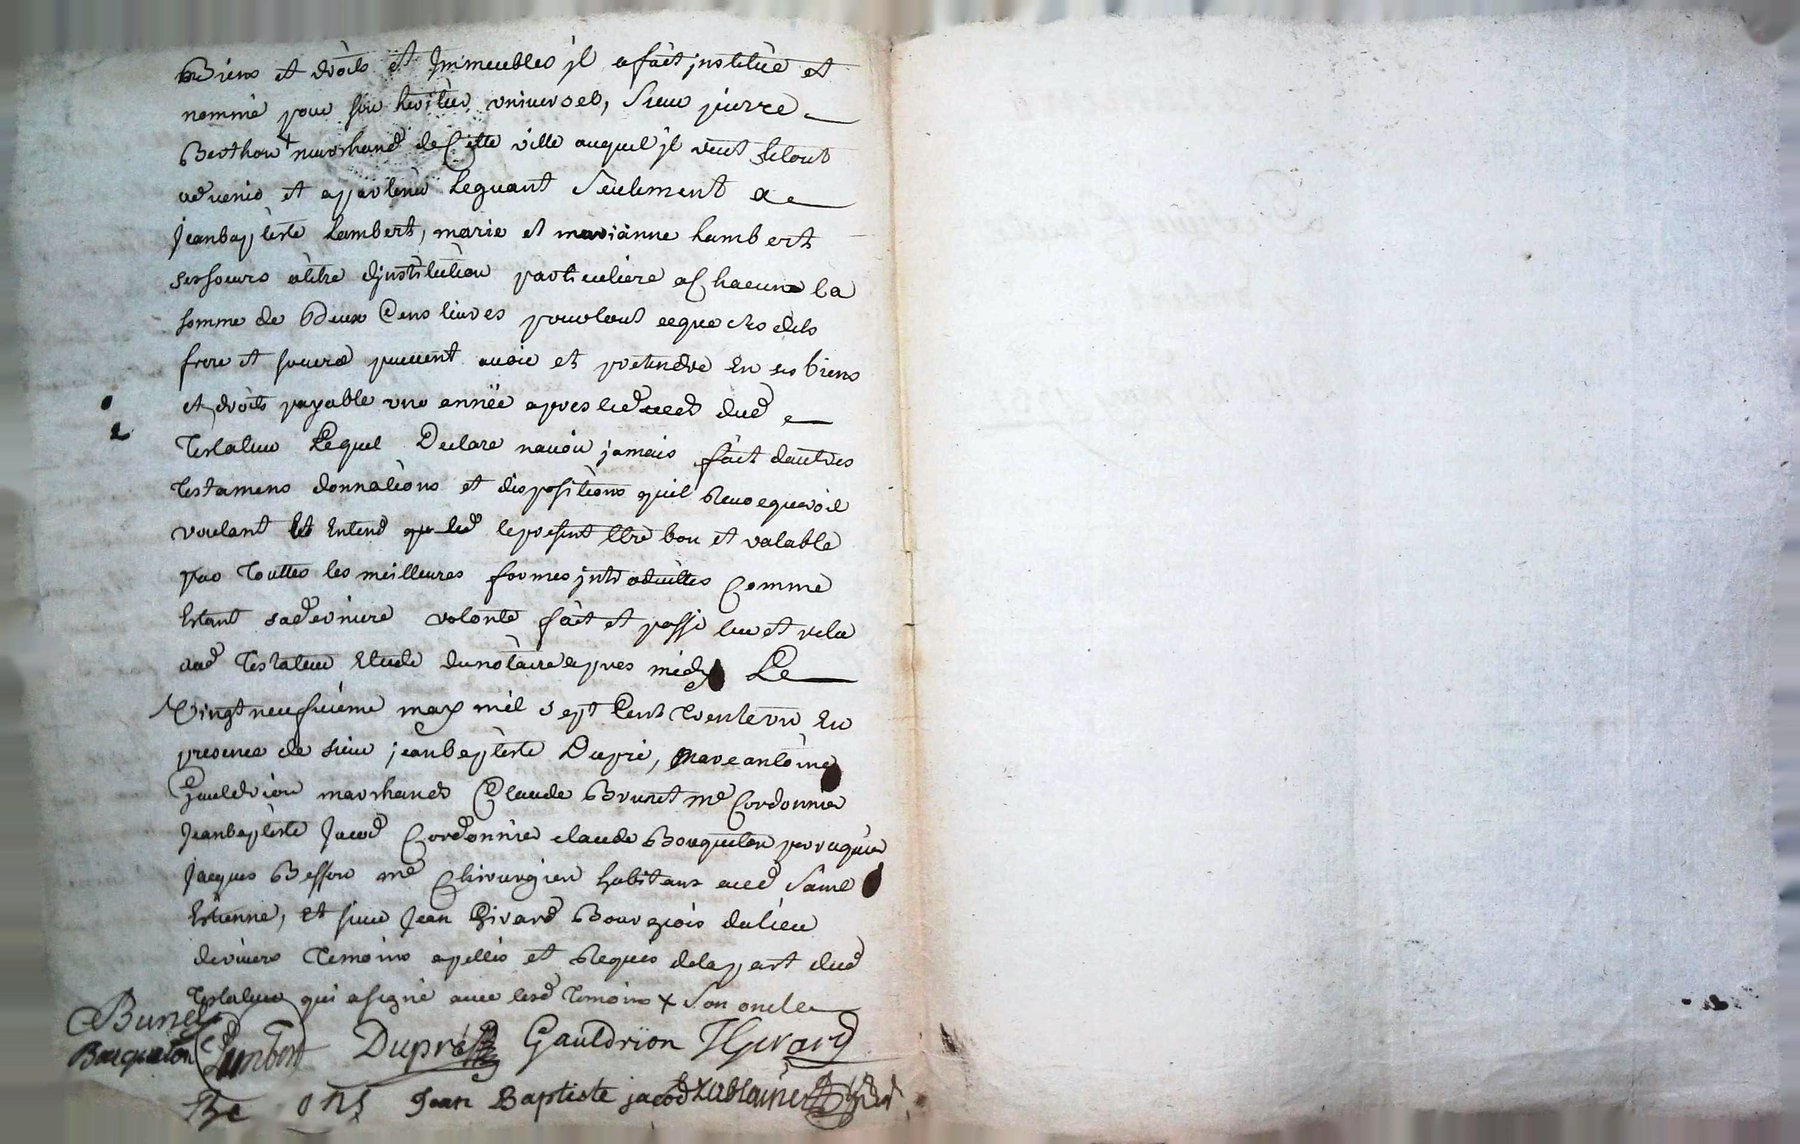 Biens et droits et Jmmeubles jl a fait jnstitué et
nommé pour son heritier universel, Sieur pierre
Berthon+ marchand de Cette ville auquel jl veut le tout
advenir et apartenir Leguant Seulement a
Jeanbaptiste Lambert, marie et marianne Lambert
ses soeurs a titre djnstitution particuliere a Chacune la
somme de deux Cens livres pour tout ce que ses dits
frere et soeurs puuent avoir et pretendre En ses biens
et droits payable une année apres le deced dud
Testateur Lequel Declare navoir jamais fait dautres
Testamens donnations et dispositions quil Revoqueroit
voulant Et Entend le present Etre bon et valable
par Touttes les meilleures formes jntroduittes Comme
Estant sa derniere volonté fait et passé leu et releu
aud Testateur Etude du notaire apres midy Le
Vingt neufvieme may mil sept Cent Trente un En
presence de sieur jeanbaptiste Dupré, Marc antoine
Gauldrion marchands Claude Brunet me Cordonnier
Jeanbaptiste Jacod Cordonnier claude Bouqueton peruquier
Jacques Besson me Chirurgien habitans aud Saint
Estienne, et sieur Jean Girard Bourgeois du lieu
de Temoins apellés et Requis de la part dud
Testateur qui a signé avec lesd Temoins + Son oncle
Bunet
Bouqueton Lambert Dupré Gauldrion JGirard
Jean Baptiste jacod